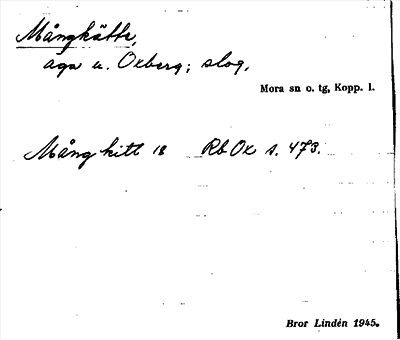 Mångkätte,
aga u. Oxberg; slog.
Mora sn o. tg, Kopp. l.
Mång kitt 18 RbOx s. 473.
Bror Lindén 1945.